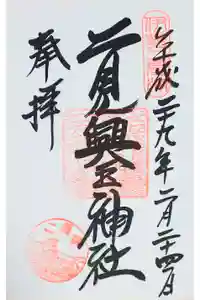 平成二十九年二月二十四日
二見興玉神社
奉拝